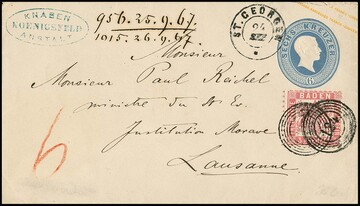 KNABEN
KOENIGSFELD
ANSTALT
956. 25. 9. 67.
1015. 26. 9. 67
ST. GEORGEN
24
SECHS KREUZER
6
Monsieur
Monsieur Paul Reichel
ministre du St Ev.
Institution Morave
Lausanne
BADEN
6